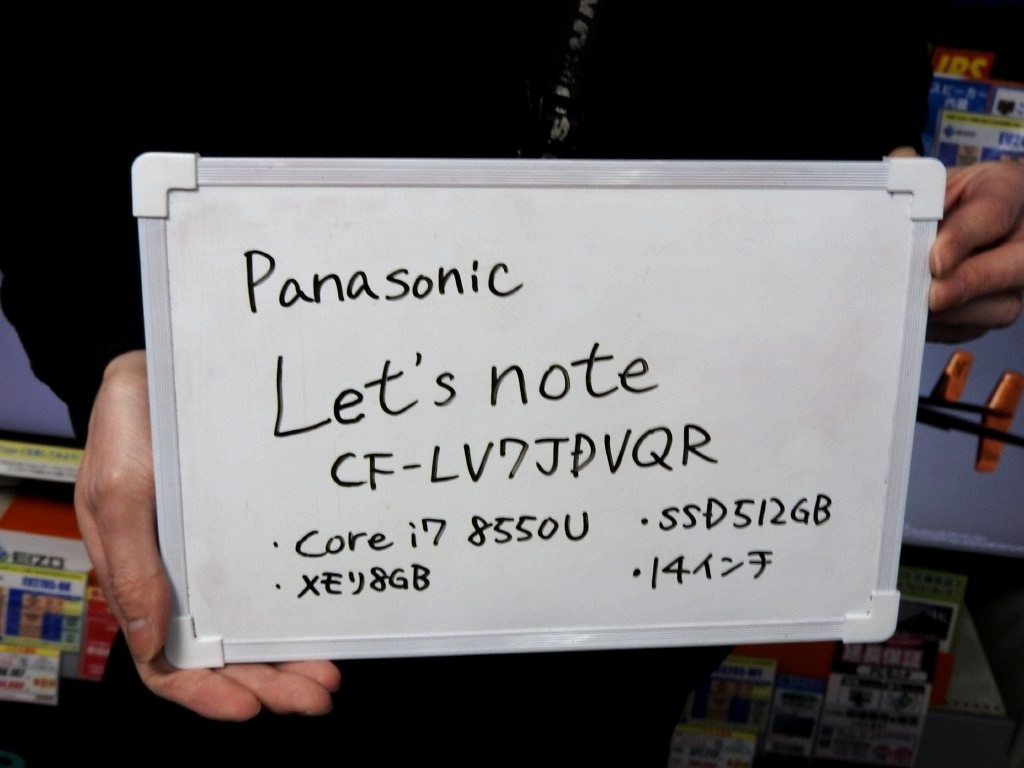 Panasonic
Let's note
CF-LV7JDVQR
・Core i7 8550U
・SSD512GB
・メモリ8GB
・14インチ
IPS
スピーカー
内蔵
EIZO